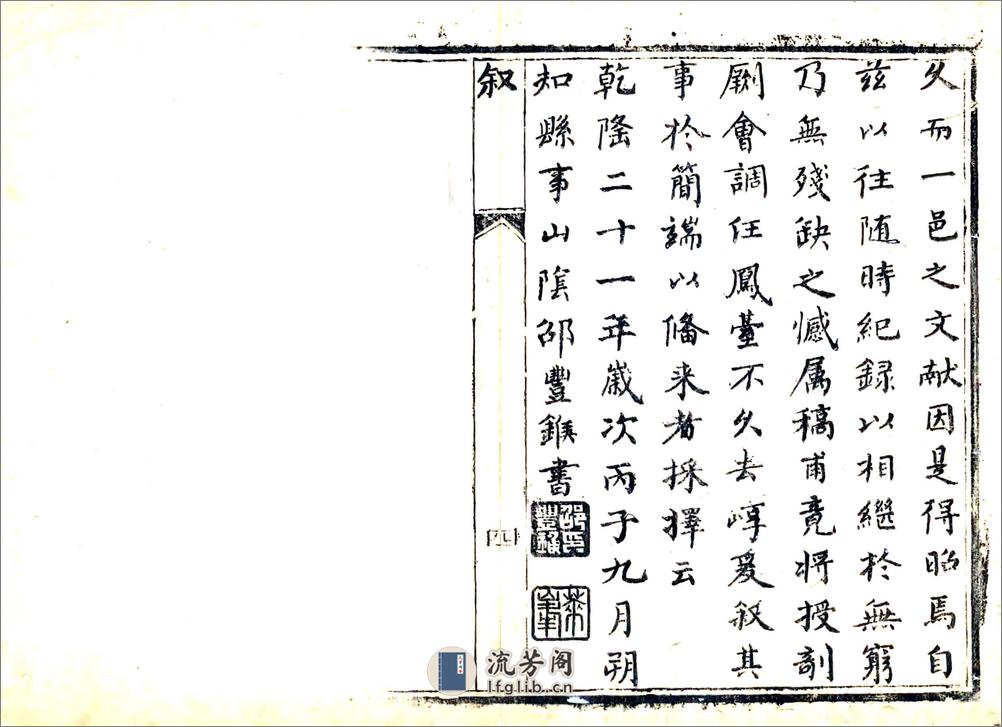 久而一邑之文献因是得昭焉自
兹以往随時紀録以相繼於無窮
乃無殘缺之憾属稿甫竟将授剞
劂會調任鳳臺不久去崞爰叙其
事於簡端以備来者採擇云
乾隆二十一年歲次丙子九月朔
知縣事山陰邵豐鍭書
叙
四
流芳阁
lfglib.cn